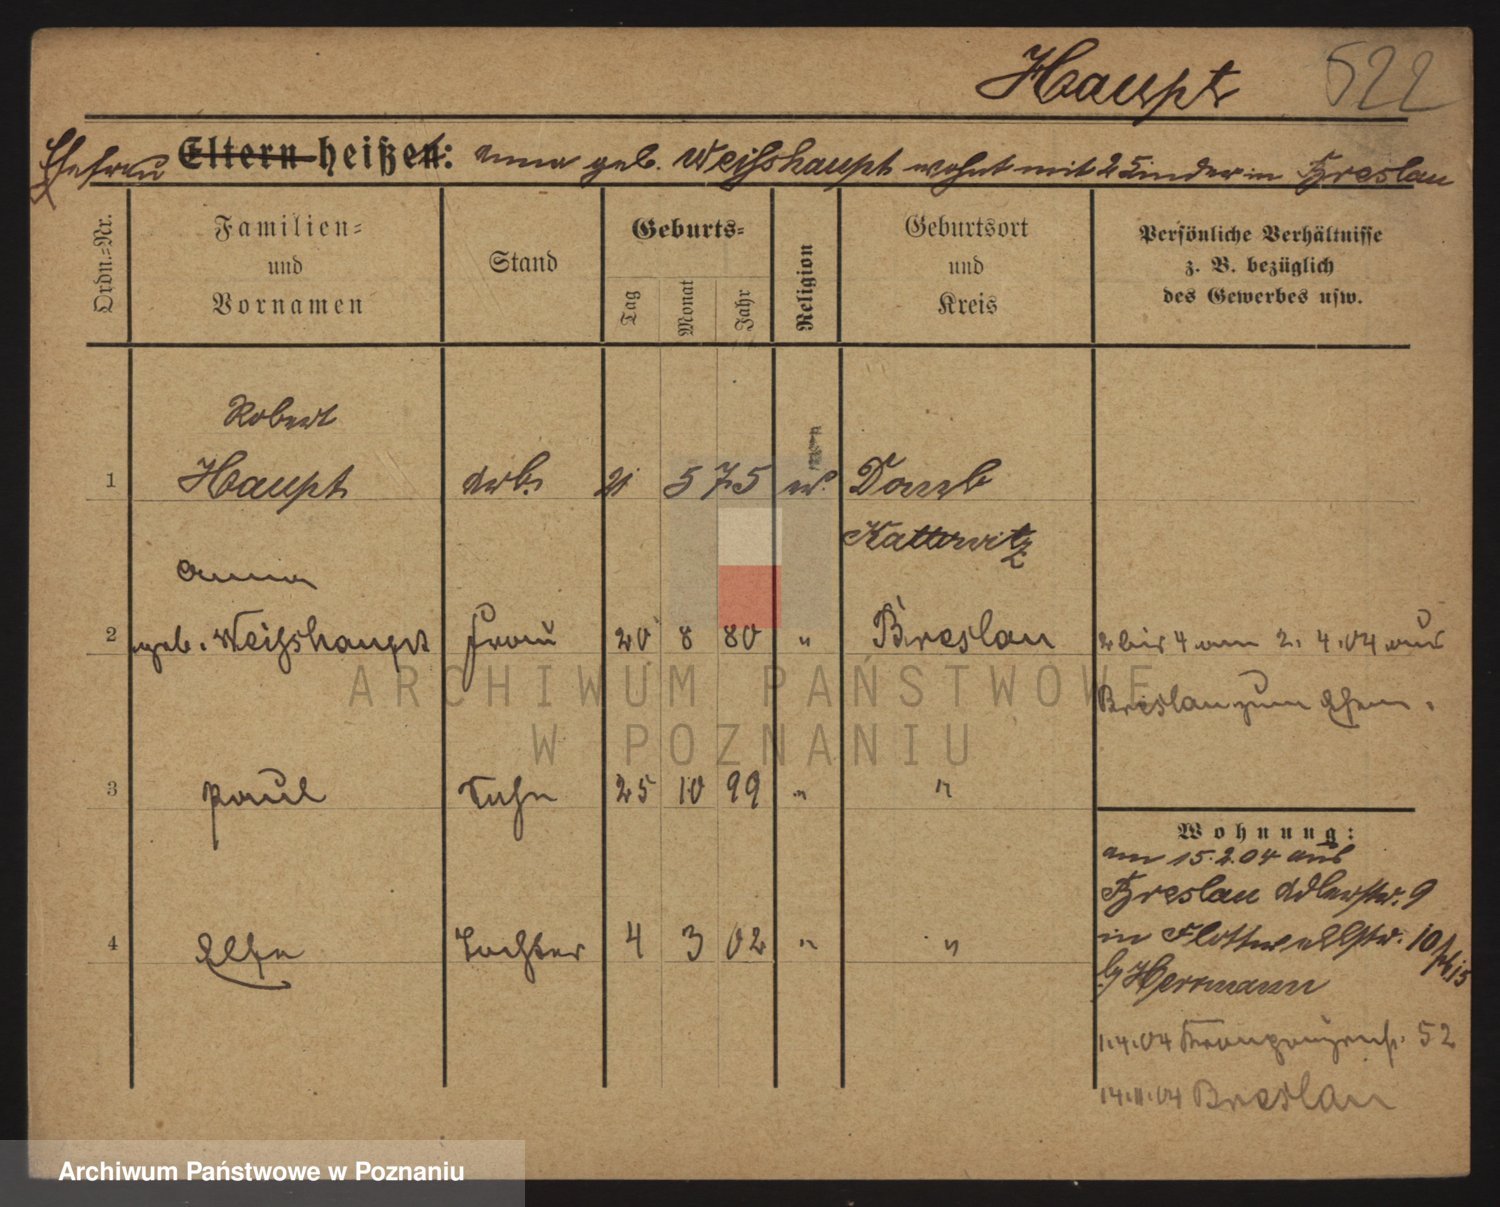 Haupt 522
Ehefrau Eltern heißen: Anna geb. Weißhaupt wohnt mit 2 Kinder in Breslau
Ordn.=Nr.
Familien=
und
Vornamen
Stand
Geburts=
Tag
Monat
Jahr
Religion
Geburtsort
und
Kreis
Persönliche Verhältnisse
z. B. bezüglich
des Gewerbes usw.
Robert
1 Haupt Arb. 21 5 75 Domb
Kattowitz
Anna
2 geb. Weißhaupt Frau 20 8 80 " Breslau 2 bis 4 am 2. 4. 04 aus
Breslau zum Ehem.
3 Paul Sohn 25 10 99 " "
4 Else Tochter 4 3 02 " "
Wohnung:
am 15.2.04 aus
Breslau Adlerstr. 9
in Flottwellstr. 10
b/ Herrmann
1.4.04 Kronprinzenstr. 52
14.11.04 Breslau
ARCHIWUM PAŃSTWOWE
W POZNANIU
Archiwum Państwowe w Poznaniu